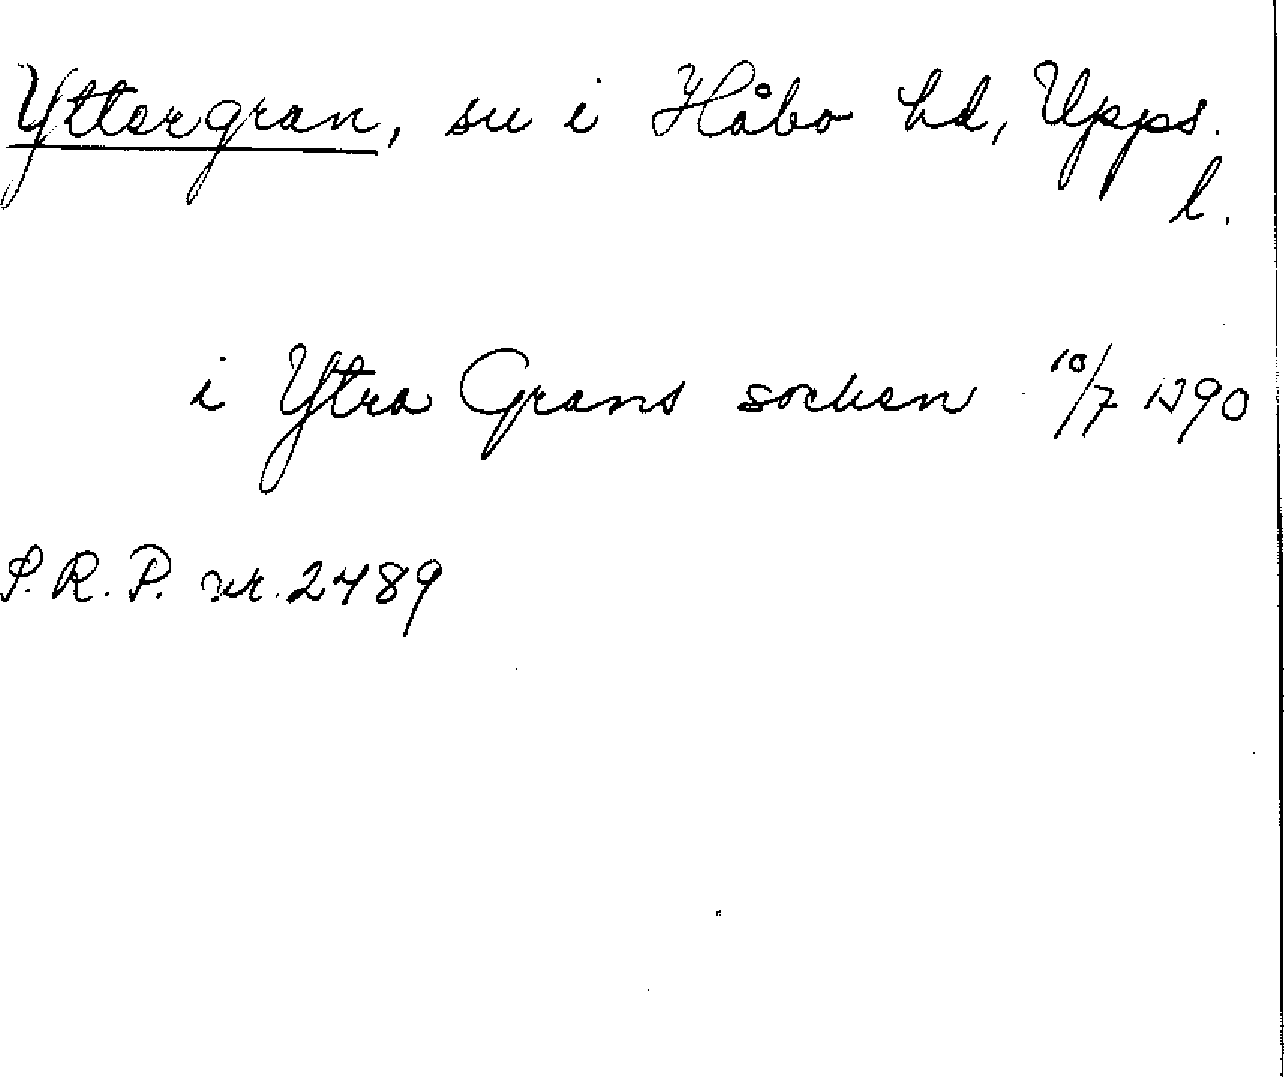 Yttergran, sn i Håbo hd, Upps.
l.
i Ytra Grans socken 10/7 1390
S.R.P. nr. 2489